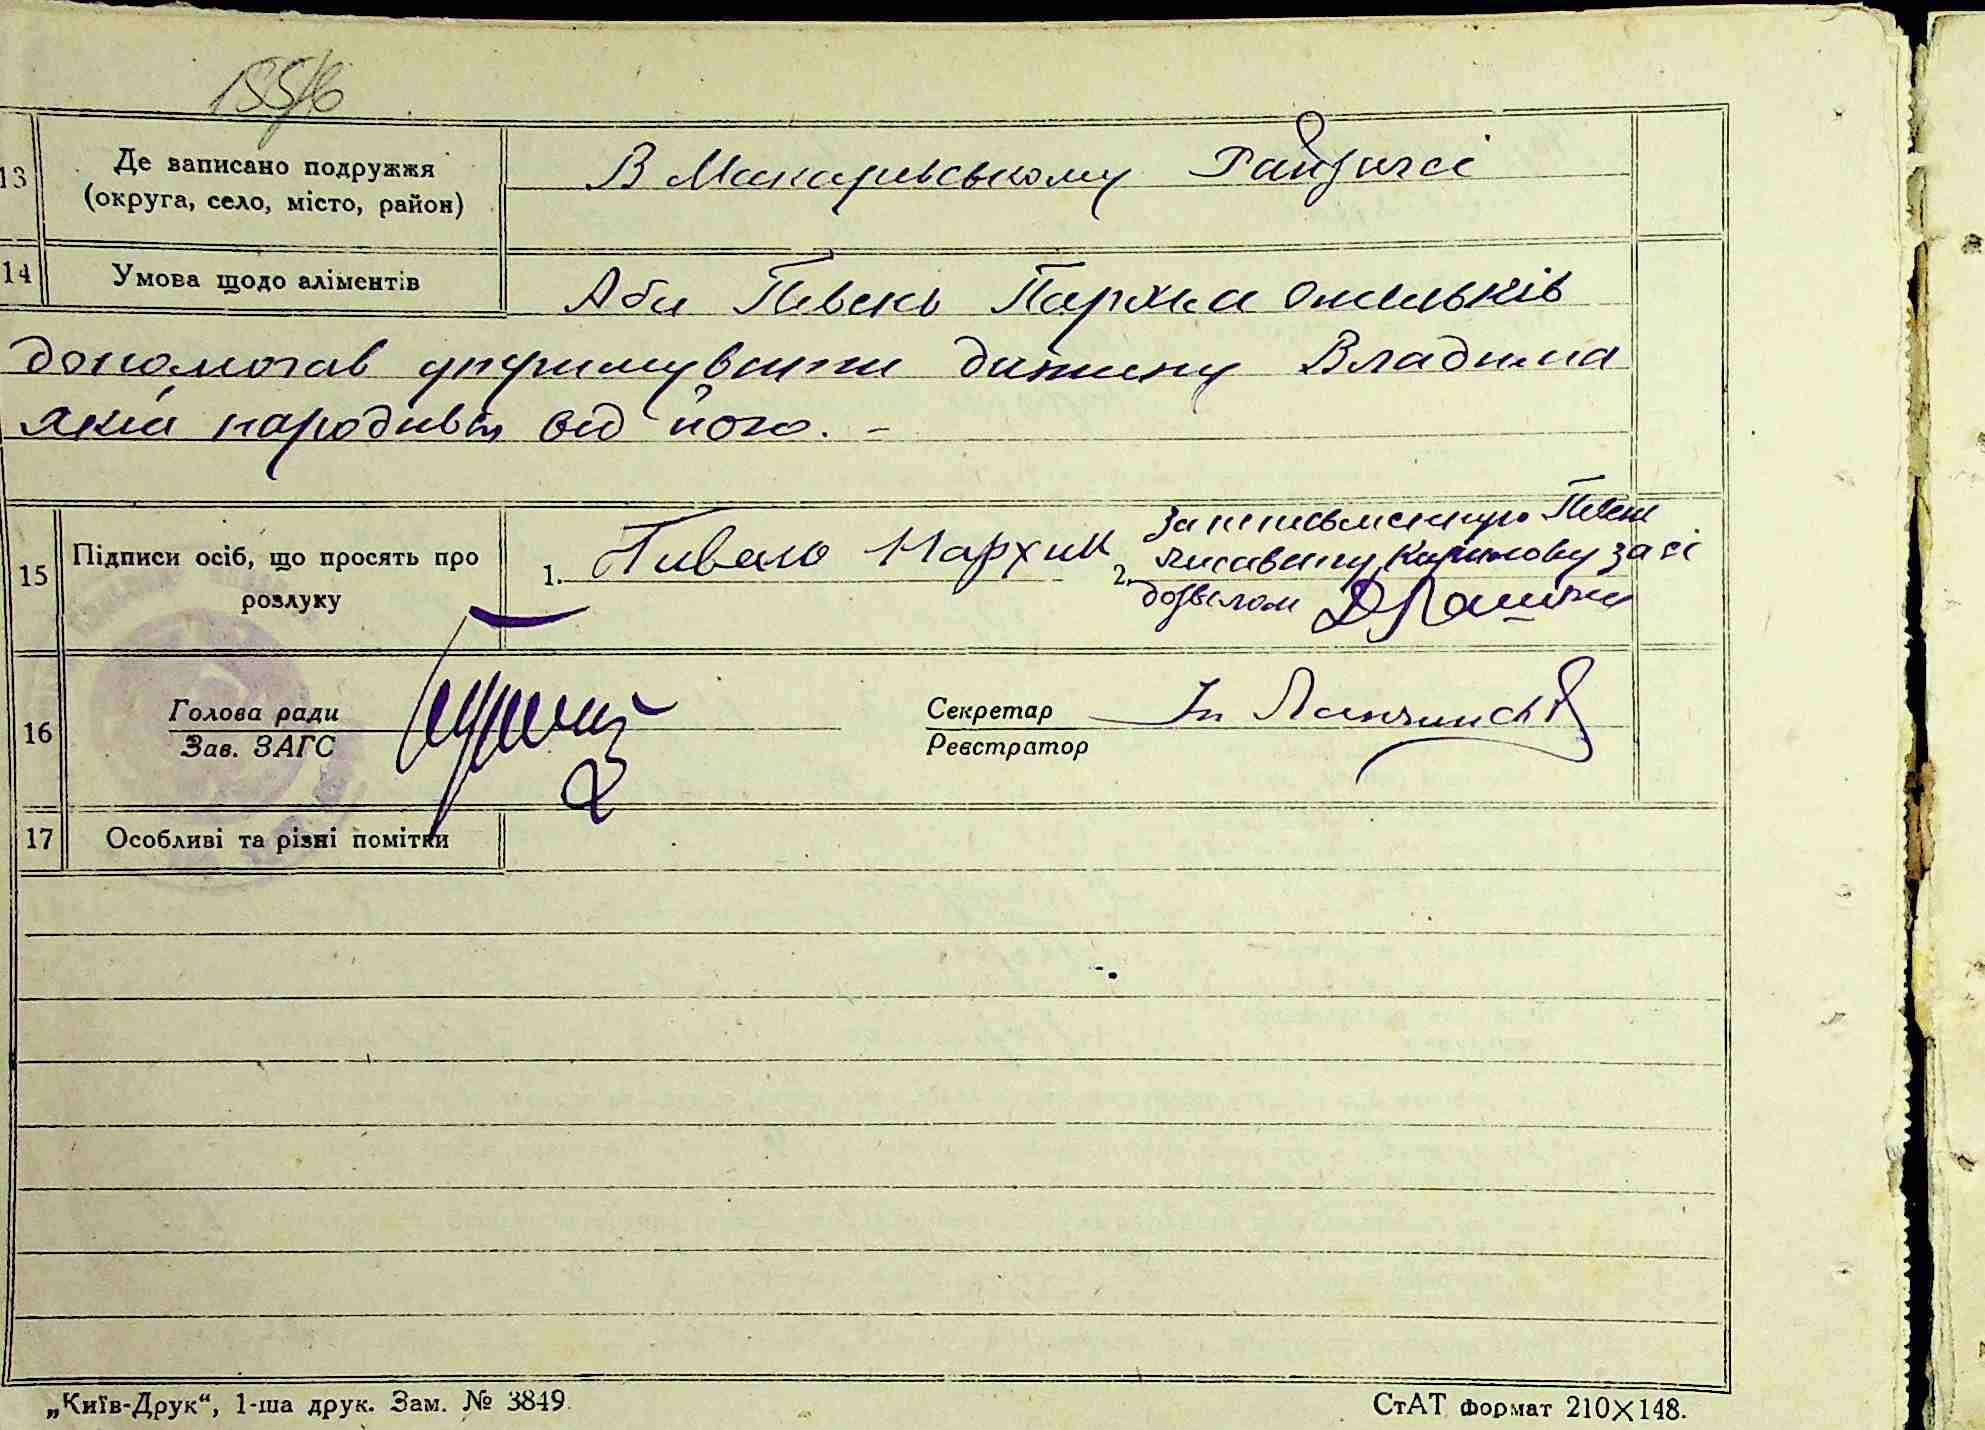 155/6
13
Де записано подружжя
(округа, село, місто, район)
В Макарівському Райзагсі
14
Умова щодо аліментів
Аби Півень Пархом Омельків
допомогав утримувати дитину Владима
який народивсь від його. –
15
Підписи осіб, що просять про
розлуку
1. Пивень
2. За неписьменную Півень
за її
дозволом
16
Голова ради
Зав. ЗАГС
Секретар
Реєстратор
17
Особливі та різні помітки
„Київ-Друк“, 1-ша друк. Зам. № 3849
СтАТ формат 210×148.